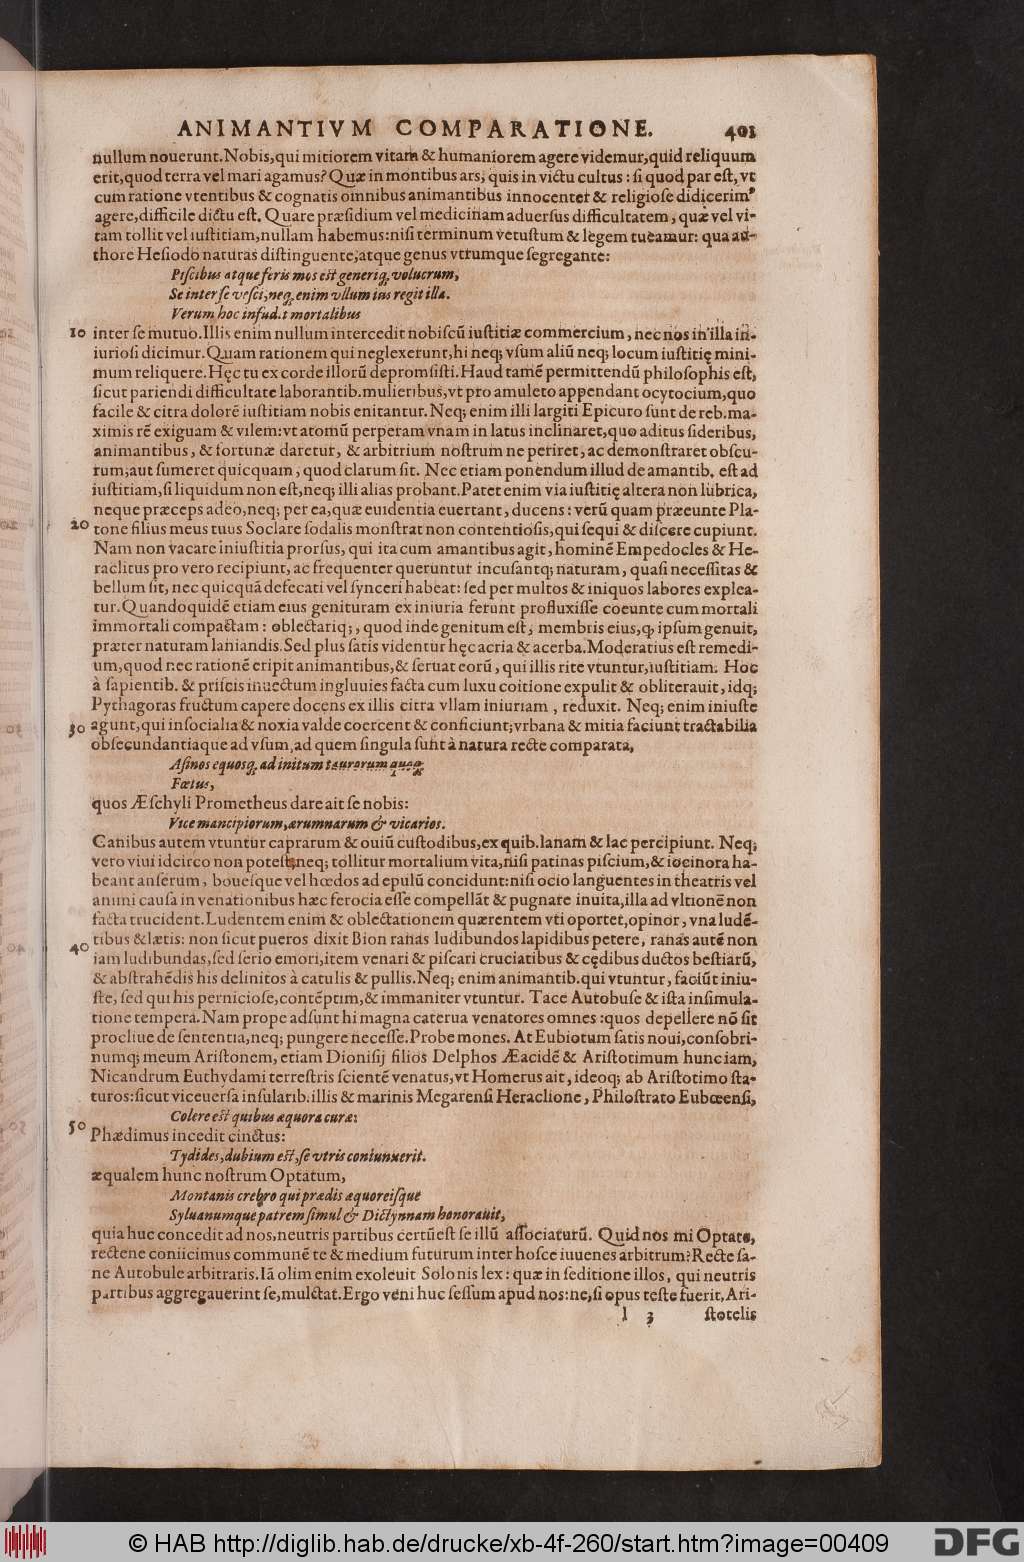 ANIMANTIVM COMPARATIONE. 401
nullum nouerunt. Nobis, qui mitiorem vitam & humaniorem agere videmur, quid reliquum
erit, quod terra vel mari agamus? Quæ in montibus ars, quis in victu cultus: si quod par est, vt
cum ratione vtentibus & cognatis omnibus animantibus innocenter & religiose didicerimꝰ
agere, difficile dictu est. Quare præsidium vel medicinam aduersus difficultatem, quæ vel vi-
tam tollit vel iustitiam, nullam habemus: nisi terminum vetustum & legem tueamur: qua au-
thore Hesiodo naturas distinguente, atque genus vtrumque segregante:
Piscibus atque feris mos est generiq; volucrum,
Se inter se vesci, neq; enim vllum ius regit illa.
Verum hoc insud.t mortalibus
10 inter se mutuo. Illis enim nullum intercedit nobiscū iustitiæ commercium, nec nos in illa in-
iuriosi dicimur. Quam rationem qui neglexerunt, hi neq; vsum aliū neq; locum iustitię mini-
mum reliquere. Hęc tu ex corde illorū depromsisti. Haud tamē permittendū philosophis est,
sicut pariendi difficultate laborantib. mulieribus, vt pro amuleto appendant ocytocium, quo
facile & citra dolorē iustitiam nobis enitantur. Neq; enim illi largiti Epicuro sunt de reb. ma-
ximis rē exiguam & vilem: vt atomū perperam vnam in latus inclinaret, quo aditus sideribus,
animantibus, & fortunæ daretur, & arbitrium nostrum ne periret, ac demonstraret obscu-
rum, aut sumeret quicquam, quod clarum sit. Nec etiam ponendum illud de amantib. est ad
iustitiam, si liquidum non est, neq; illi alias probant. Patet enim via iustitię altera non lubrica,
neque præceps adeo, neq; per ea, quæ euidentia euertant, ducens: verū quam præeunte Pla-
20 tone filius meus tuus Soclare sodalis monstrat non contentiosis, qui sequi & discere cupiunt.
Nam non vacare iniustitia prorsus, qui ita cum amantibus agit, hominē Empedocles & He-
raclitus pro vero recipiunt, ac frequenter queruntur incusantq; naturam, quasi necessitas &
bellum sit, nec quicquā defecati vel synceri habeat: sed per multos & iniquos labores explea-
tur. Quandoquidē etiam eius genituram ex iniuria ferunt profluxisse coeunte cum mortali
immortali compactam: oblectariq;, quod inde genitum est, membris eius, q, ipsum genuit,
præter naturam laniandis. Sed plus satis videntur hęc acria & acerba. Moderatius est remedi-
um, quod nec rationē eripit animantibus, & seruat eorū, qui illis rite vtuntur, iustitiam. Hoc
à sapientib. & priscis inuectum ingluuies facta cum luxu coitione expulit & obliterauit, idq;
Pythagoras fructum capere docens ex illis citra vllam iniuriam, reduxit. Neq; enim iniuste
30 agunt, qui insocialia & noxia valde coercent & conficiunt; vrbana & mitia faciunt tractabilia
obsecundantiaque ad vsum, ad quem singula sunt à natura recte comparata,
Asinos equosq; ad initum taurorum quoq;
Fœtus,
quos Æschyli Prometheus dare ait se nobis:
Vice mancipiorum, ærumnarum & vicarios.
Canibus autem vtuntur caprarum & ouiū custodibus, ex quib. lanam & lac percipiunt. Neq;
vero viui idcirco non potest, neq; tollitur mortalium vita, nisi patinas piscium, & iocinora ha-
beant anserum, bouesque vel hœdos ad epulū concidunt: nisi ocio languentes in theatris vel
animi causa in venationibus hæc ferocia esse compellāt & pugnare inuita, illa ad vltionē non
facta trucident. Ludentem enim & oblectationem quærentem vti oportet, opinor, vna ludē-
40 tibus & lætis: non sicut pueros dixit Bion ranas ludibundos lapidibus petere, ranas autē non
iam ludibundas, sed serio emori, item venari & piscari cruciatibus & cędibus ductos bestiarū,
& abstrahēdis his delinitos à catulis & pullis. Neq; enim animantib. qui vtuntur, faciūt iniu-
ste, sed qui his perniciose, contēptim, & immaniter vtuntur. Tace Autobule & ista insimula-
tione tempera. Nam prope adsunt hi magna caterua venatores omnes: quos depellere nō sit
procliue de sententia, neq; pungere necesse. Probe mones. At Eubiotum satis noui, consobri-
numq; meum Aristonem, etiam Dionisij filios Delphos Æacidē & Aristotimum hunc iam,
Nicandrum Euthydami terrestris scientē venatus, vt Homerus ait, ideoq; ab Aristotimo sta-
turos: sicut viceuersa insularib. illis & marinis Megarensi Heraclione, Philostrato Eubœensi,
Colere est quibus æquora curæ:
50 Phædimus incedit cinctus:
Tydides, dubium est, se vtris coniunxerit.
æqualem hunc nostrum Optatum,
Montanis crebro qui prædis æquoreisque
Syluanumque patrem simul & Dictynnam honorauit,
quia huc concedit ad nos, neutris partibus certū est se illū associaturū. Quid nos mi Optate,
rectene coniicimus communē te & medium futurum inter hosce iuuenes arbitrum? Recte sa-
ne Autobule arbitraris. Iā olim enim exoleuit Solonis lex: quæ in seditione illos, qui neutris
partibus aggregauerint se, mulctat. Ergo veni huc sessum apud nos: ne, si opus teste fuerit, Ari-
l 3 stotelis
© HAB http://diglib.hab.de/drucke/xb-4f-260/start.htm?image=00409
DFG